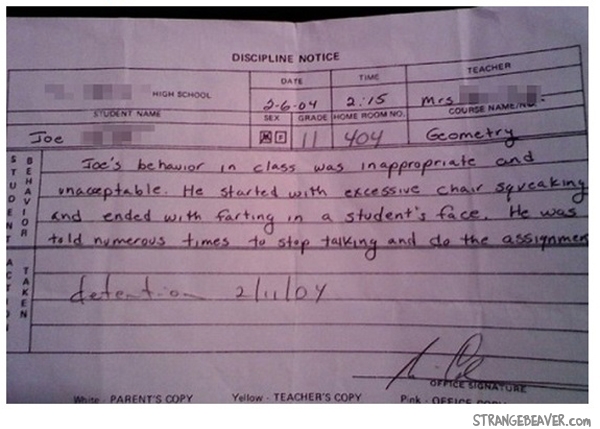 DISCIPLINE NOTICE
HIGH SCHOOL
DATE
TIME
TEACHER
2-6-04
2:15
Mrs
STUDENT NAME
SEX
GRADE
HOME ROOM NO.
COURSE NAME/NO.
Joe
M F
11
404
Geometry
STUDENT BEHAVIOR
Joe's behavior in class was inappropriate and
unacceptable. He started with excessive chair squeaking
and ended with farting in a student's face. He was
told numerous times to stop talking and do the assignmen
ACTION TAKEN
detention 2/11/04
OFFICE SIGNATURE
White - PARENT'S COPY
Yellow - TEACHER'S COPY
Pink - OFFICE COPY
STRANGEBEAVER.com